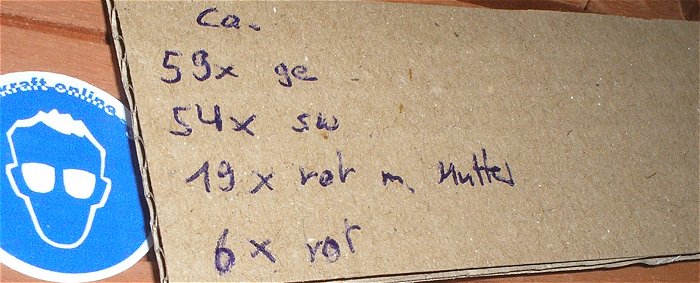 kraft-online
Ca.
59x ge
54x sw
19 x rot m. Mutter
6 x rot